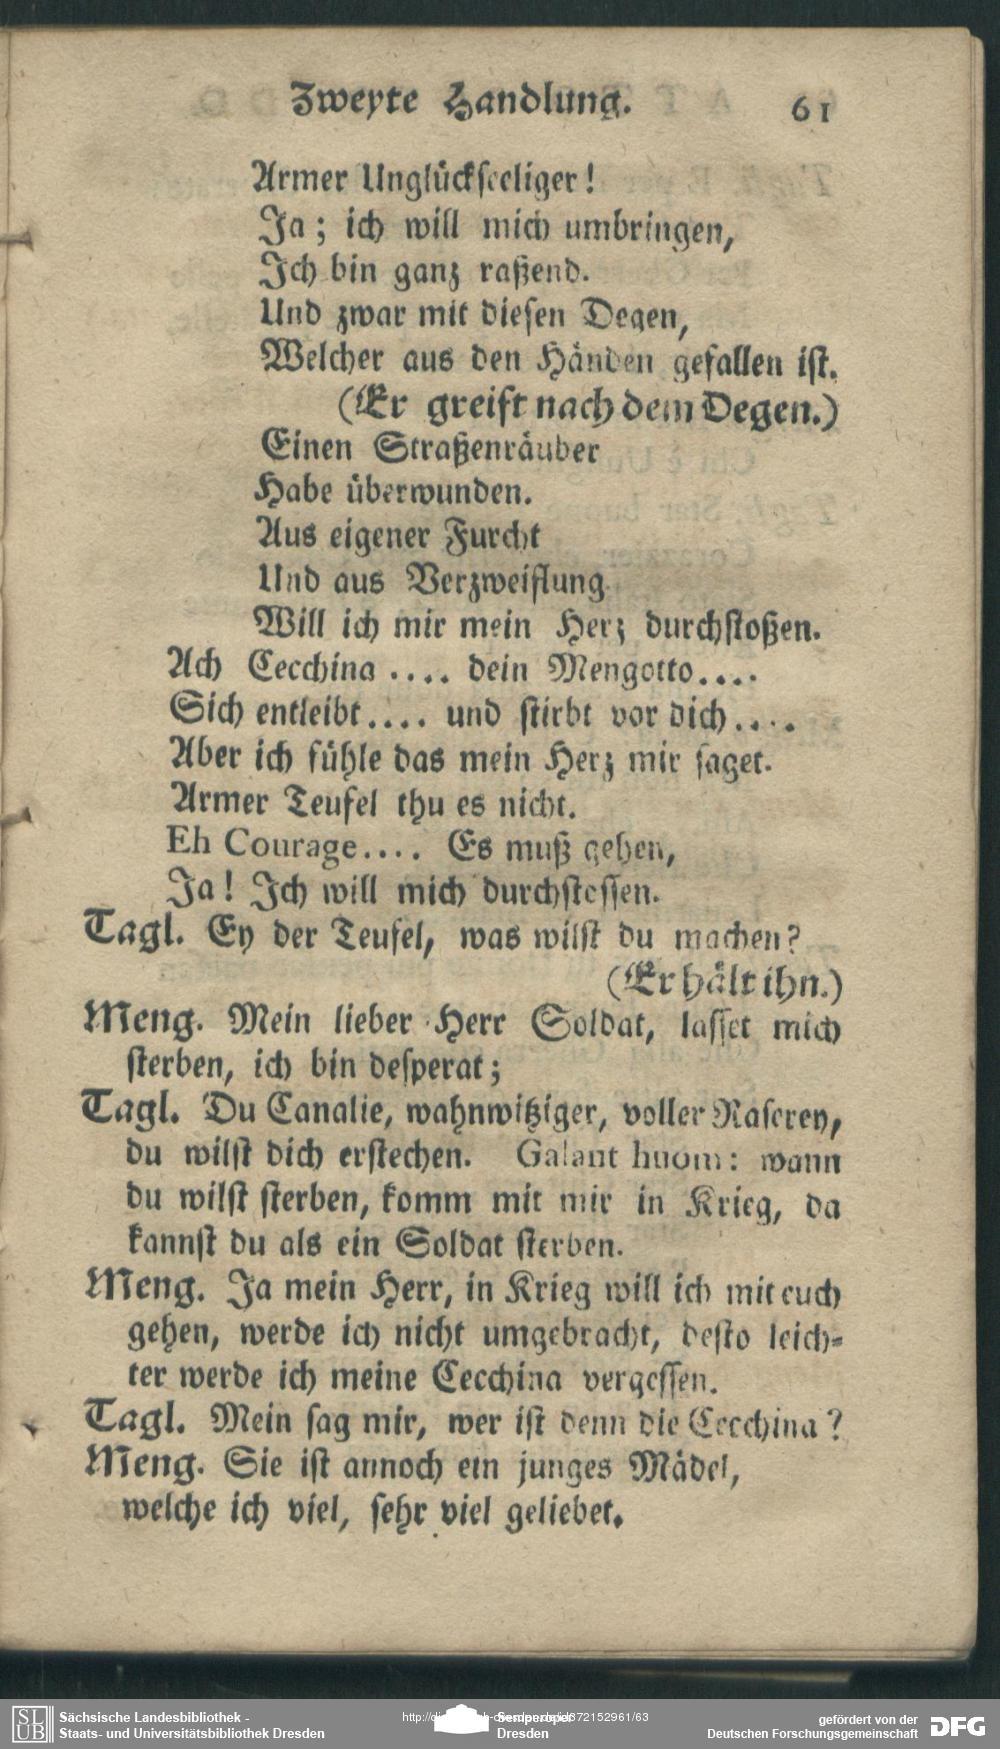 Zweyte Handlung. 61
Armer Unglückseeliger!
Ja; ich will mich umbringen,
Ich bin ganz raßend.
Und zwar mit diesen Degen,
Welcher aus den Händen gefallen ist.
(Er greift nach dem Degen.)
Einen Straßenräuber
Habe überwunden.
Aus eigener Furcht
Und aus Verzweiflung
Will ich mir mein Herz durchstoßen.
Ach Cecchina .... dein Mengotto....
Sich entleibt.... und stirbt vor dich....
Aber ich fühle das mein Herz mir saget.
Armer Teufel thu es nicht.
Eh Courage.... Es muß gehen,
Ja! Ich will mich durchstossen.
Tagl. Ey der Teufel, was wilst du machen?
(Er hält ihn.)
Meng. Mein lieber Herr Soldat, lasset mich
sterben, ich bin desperat;
Tagl. Du Canalie, wahnwitziger, voller Raserey,
du wilst dich erstechen. Galant huom: wann
du wilst sterben, komm mit mir in Krieg, da
kannst du als ein Soldat sterben.
Meng. Ja mein Herr, in Krieg will ich mit euch
gehen, werde ich nicht umgebracht, desto leich-
ter werde ich meine Cecchina vergessen.
Tagl. Mein sag mir, wer ist denn die Cecchina?
Meng. Sie ist annoch ein junges Mädel,
welche ich viel, sehr viel geliebet.
SLUB Sächsische Landesbibliothek -
Staats- und Universitätsbibliothek Dresden
Semperoper
Dresden
372152961/63
gefördert von der
Deutschen Forschungsgemeinschaft DFG